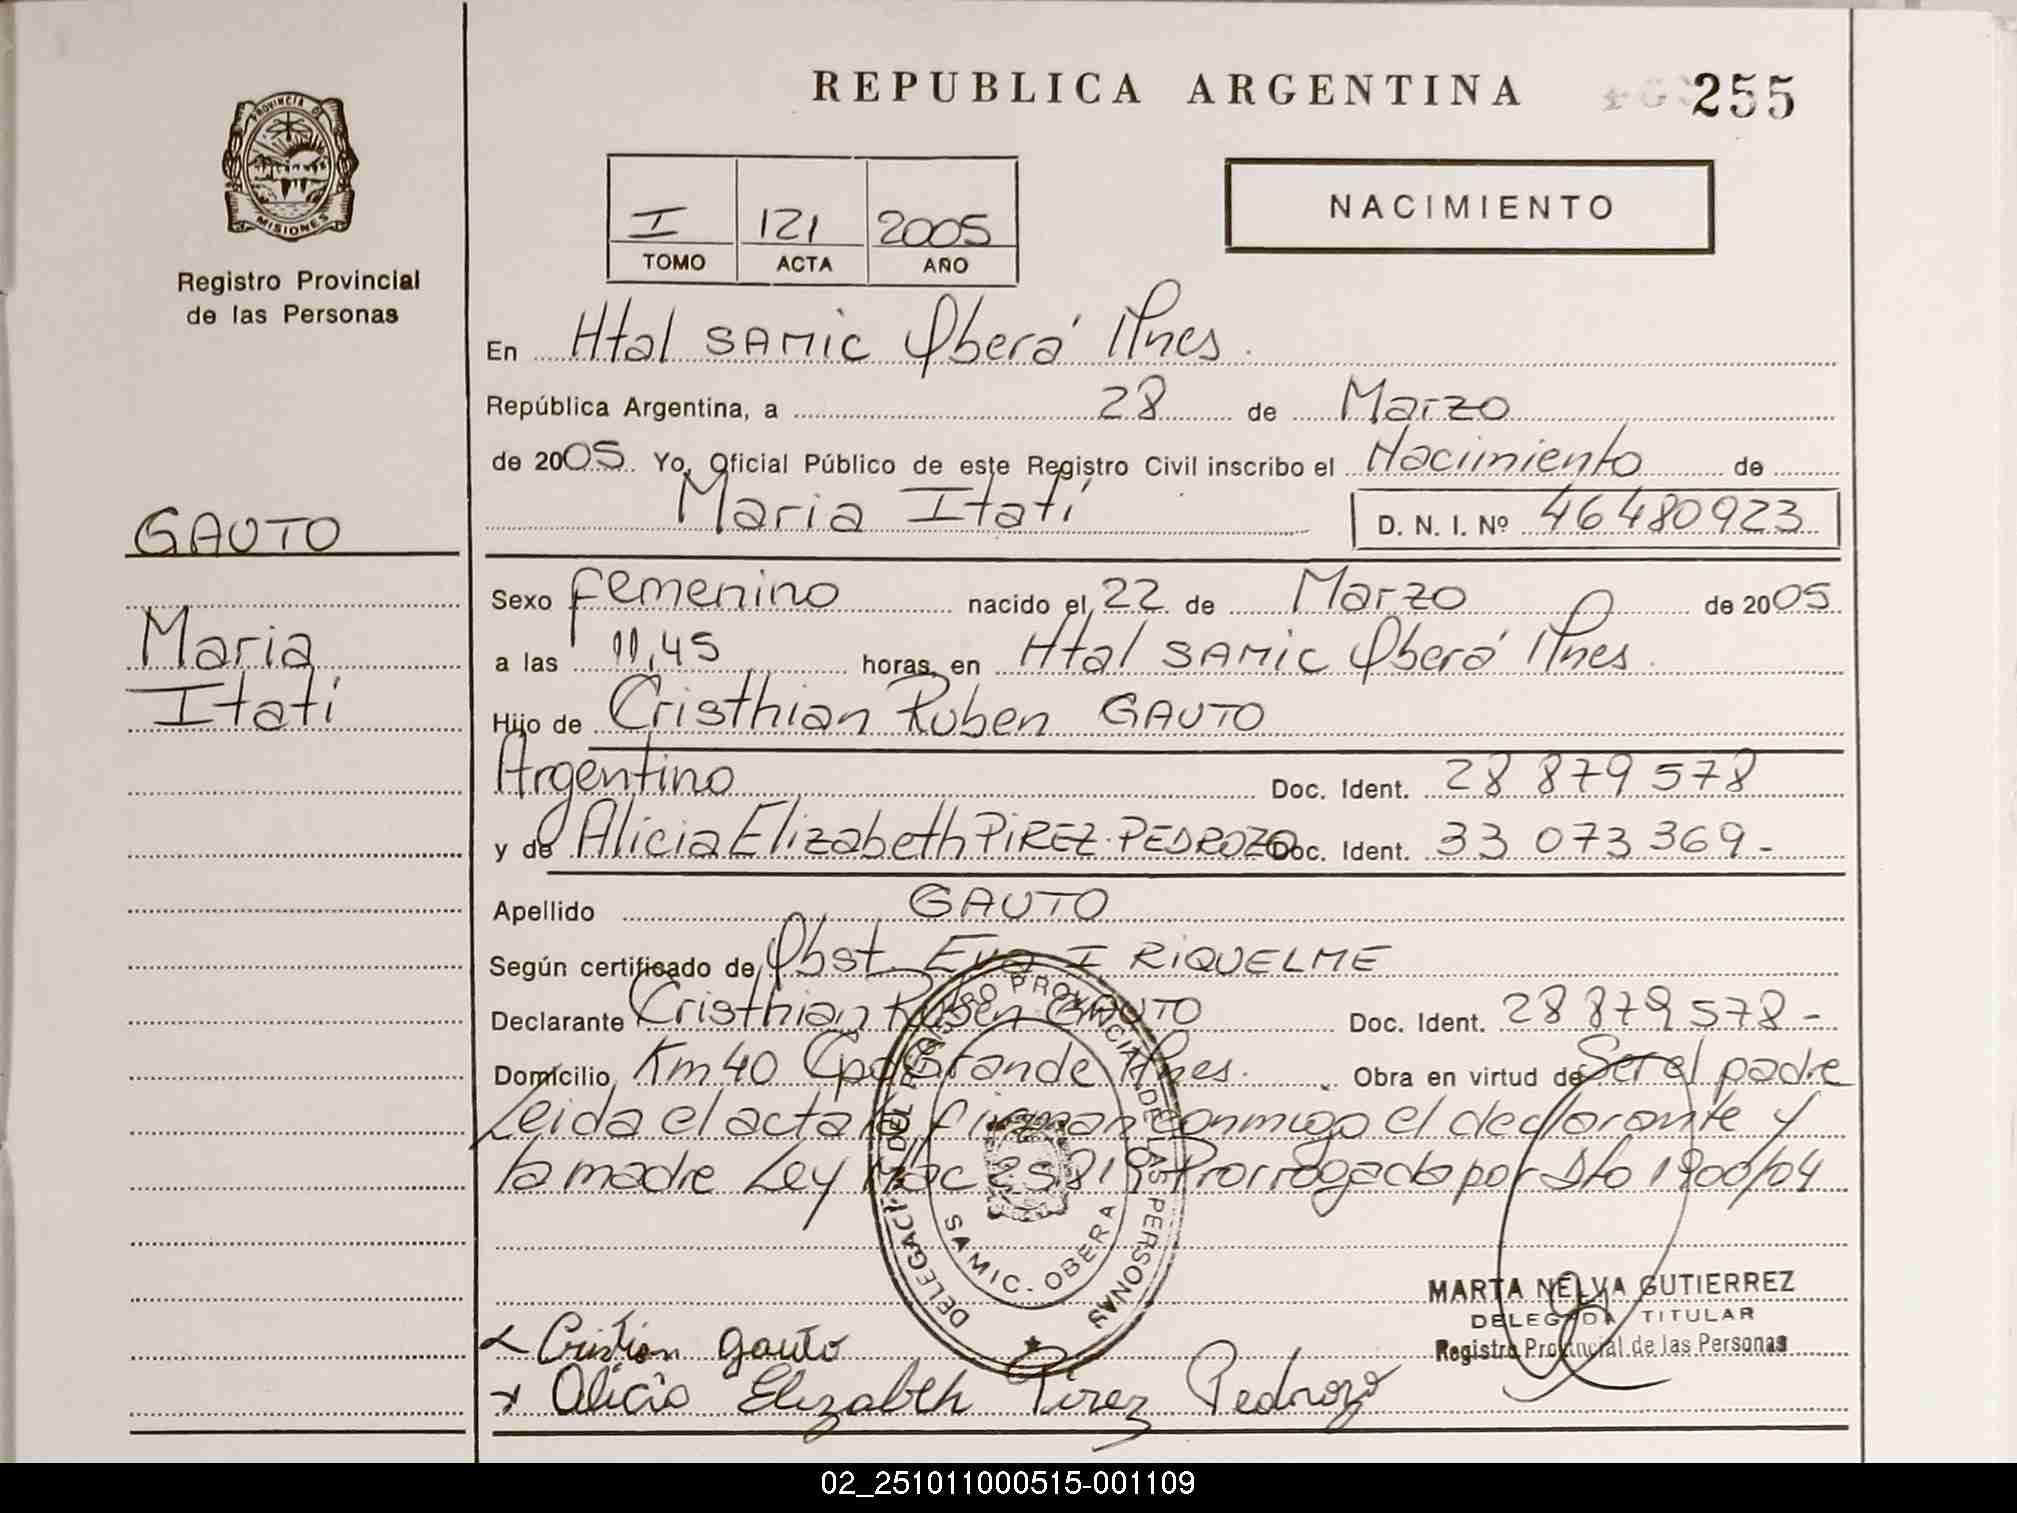 REPUBLICA ARGENTINA
255
PROVINCIA DE
MISIONES
Registro Provincial
de las Personas
I 121 2005
TOMO ACTA AÑO
NACIMIENTO
En Htal SAMIC Oberá Mnes.
República Argentina, a 28 de Marzo
de 2005. Yo, Oficial Público de este Registro Civil inscribo el Nacimiento de
Maria Itatí D. N. I. Nº 46480923
GAUTO
Maria
Itatí
Sexo femenino nacido el 22 de Marzo de 2005
a las 11,45 horas, en Htal SAMIC Oberá Mnes.
Hijo de Cristhian Ruben GAUTO
Argentino Doc. Ident. 28 879 578
y de Alicia Elizabeth PIREZ PEDROZO Doc. Ident. 33 073 369-
Apellido GAUTO
Según certificado de Obst. Eva I RIQUELME
Declarante Cristhian Ruben GAUTO Doc. Ident. 28 879 578-
Domicilio Km 40 Cpo Grande Mnes. Obra en virtud de Ser el padre
Leida el acta la firman conmigo el declarante y
la madre Ley Nac 25819 Prorrogada por Dto 1900/04
DELEGACION DEL REGISTRO PROVINCIAL DE LAS PERSONAS
SAMIC. OBERA
MARTA NELVA GUTIERREZ
DELEGADA TITULAR
Registro Provincial de las Personas
Cristian gauto
Alicia Elizabeth Pirez Pedrozo
02_251011000515-001109